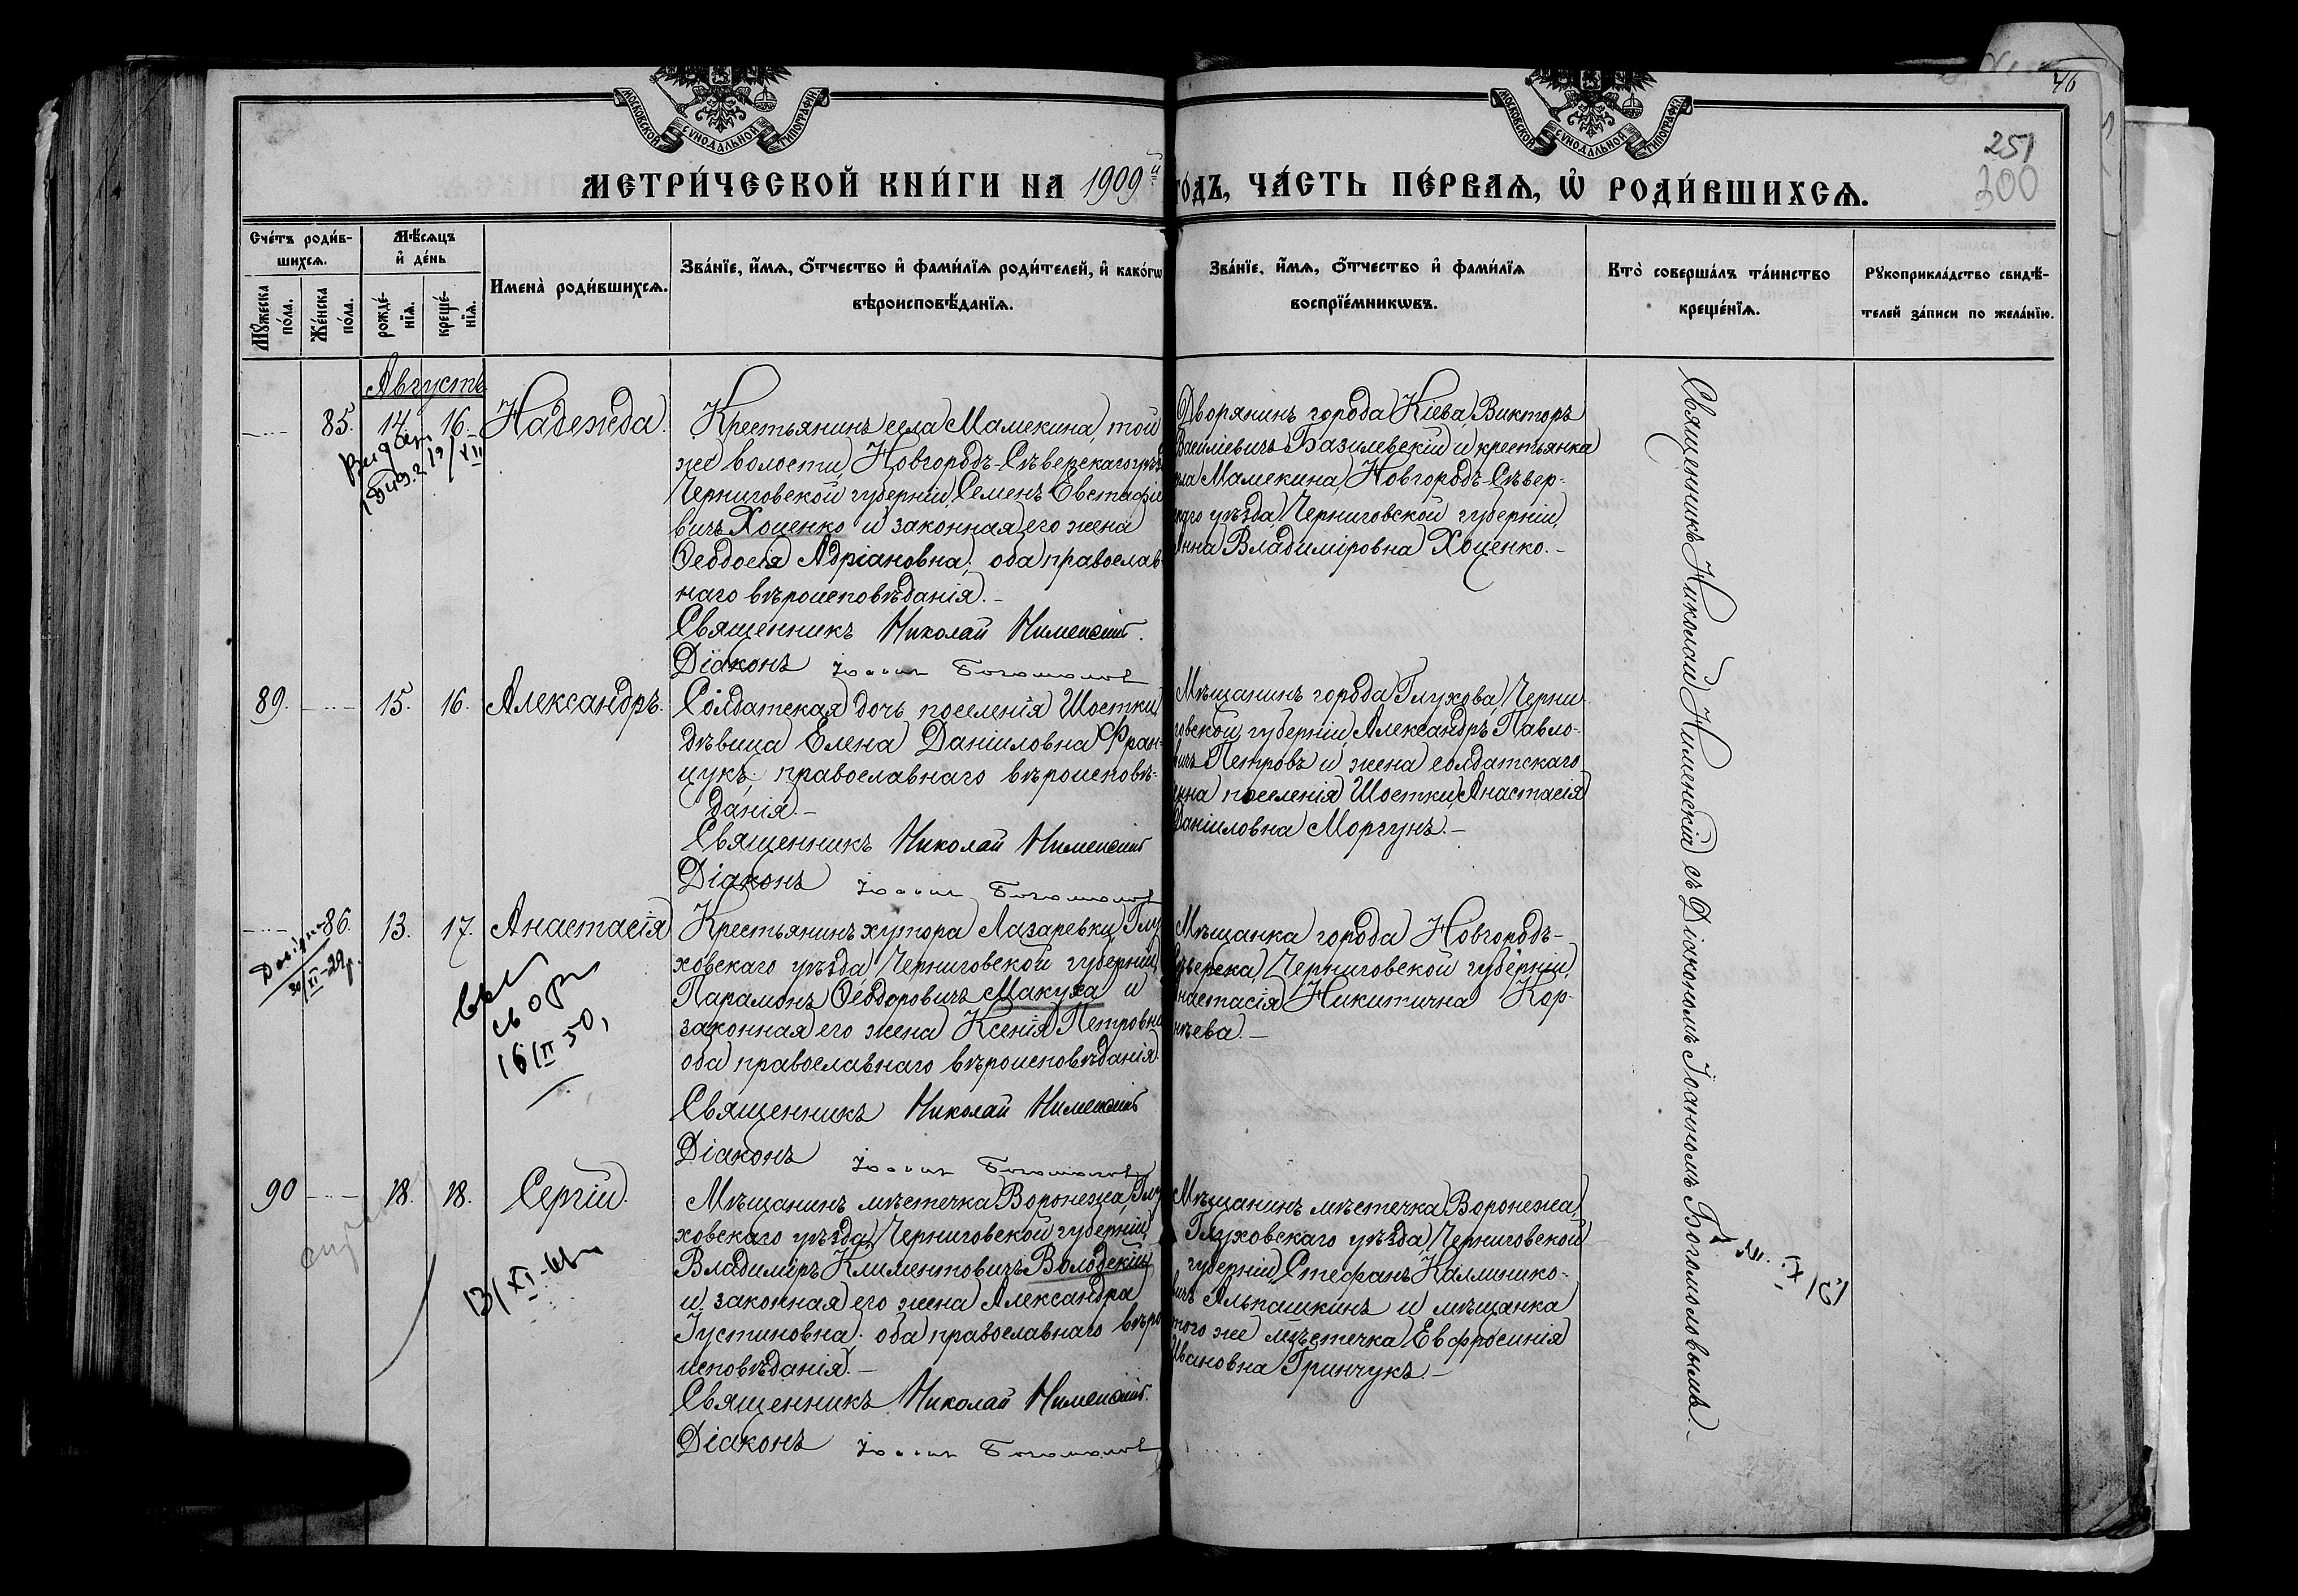 МОСКОВСКОЙ СѴНОДАЛЬНОЙ ТИПОГРАФІИ
МОСКОВСКОЙ СѴНОДАЛЬНОЙ ТИПОГРАФІИ
46
251
300
МЕТРИ́ЧЕСКОЙ КНИ́ГИ НА 1909й
ГО́ДЪ, ЧА́СТЬ ПЕ́РВАѦ, Ѡ РОДИ́ВШИХСѦ.
Сче́тъ роди́в-
шихсѧ.
Мꙋ́жеска по́ла.
Же́нска по́ла.
Мѣ́сѧцъ
и҆ де́нь
рожде́-нїѧ.
креще́-нїѧ.
Имена̀ роди́вшихсѧ.
Зва́нїе, и҆́мѧ, ѻ҆́тчество и҆ фами́лїѧ роди́телей, и҆ како́гѡ
вѣроисповѣ́данїѧ.
Зва́нїе, и҆́мѧ, ѻ҆́тчество и҆ фами́лїѧ
воспрїе́мникѡвъ.
Кто̀ соверша́лъ та́инство
креще́нїѧ.
Рꙋкоприкла́дство свидѣ́-
телей за́писи по жела́нїю.
Августъ
85.
14.
16.
Надежда.
Крестьянинъ села Мамекина, той
же волости, Новгородъ-Сѣверскаго уѣз
Черниговской губерніи, Семенъ Евстафіе
вичъ Хоценко и законная его жена
Ѳеодосія Адріановна; оба православ
наго вѣроисповѣданія.-
Священникъ Николай Нименскій.
Діаконъ Іоаннъ Богомоловъ
Дворянинъ города Кіева, Викторъ
Василіевичъ Базилевскій и крестьянка
ела Мамекина, Новгородъ-Сѣвер-
скаго уѣзда Черниговской губерніи,
Анна Владиміровна Хоценко.-
89.
15.
16.
Александръ.
Солдатская дочь поселенія Шостки,
дѣвица Елена Даниловна Фран-
цукъ; православнаго вѣроисповѣ-
данія.-
Священникъ Николай Нименскій
Діаконъ Іоаннъ Богомоловъ
Мѣщанинъ города Глухова, Черни-
говской губерніи, Александръ Павло-
вичъ Петровъ и жена солдатскаго
сына поселенія Шостки, Анастасія
Даниловна Моргунъ.-
86.
13.
17.
Анастасія
30/XI-29г.
16/II 50,
Крестьянинъ хутора Лазаревки, Глу
ховскаго уѣзда Черниговской губерніи,
Парамонъ Ѳеодоровичъ Макуха и
законная его жена Ксенія Петровна
оба православнаго вѣроисповѣданія.
Священникъ Николай Нименскій
Діаконъ Іоаннъ Богомоловъ
Мѣщанка города Новгородъ-
Сѣверска, Черниговской губерніи,
Анастасія Никитична Кор-
нѣева.-
90
18.
18.
Сергій.
13/XI-
Мѣщанинъ мѣстечка Воронежа, Глу
ховскаго уѣзда Черниговской губерніи,
Владиміръ Климентовичъ Володскій
и законная его жена Александра
Іустиновна; оба православнаго вѣро
исповѣданія.-
Священникъ Николай Нименскій.
Діаконъ Іоаннъ Богомоловъ
Мѣщанинъ мѣстечка Воронежа,
Глуховскаго уѣзда Черниговской
губерніи, Стефанъ Каллинико-
вичъ Алькашкинъ и мѣщанка
того же мѣстечка Евфросинія
Ивановна Гринчукъ.-
Священникъ Николай Нименскій съ Діакономъ Іоанномъ Богомоловымъ.-